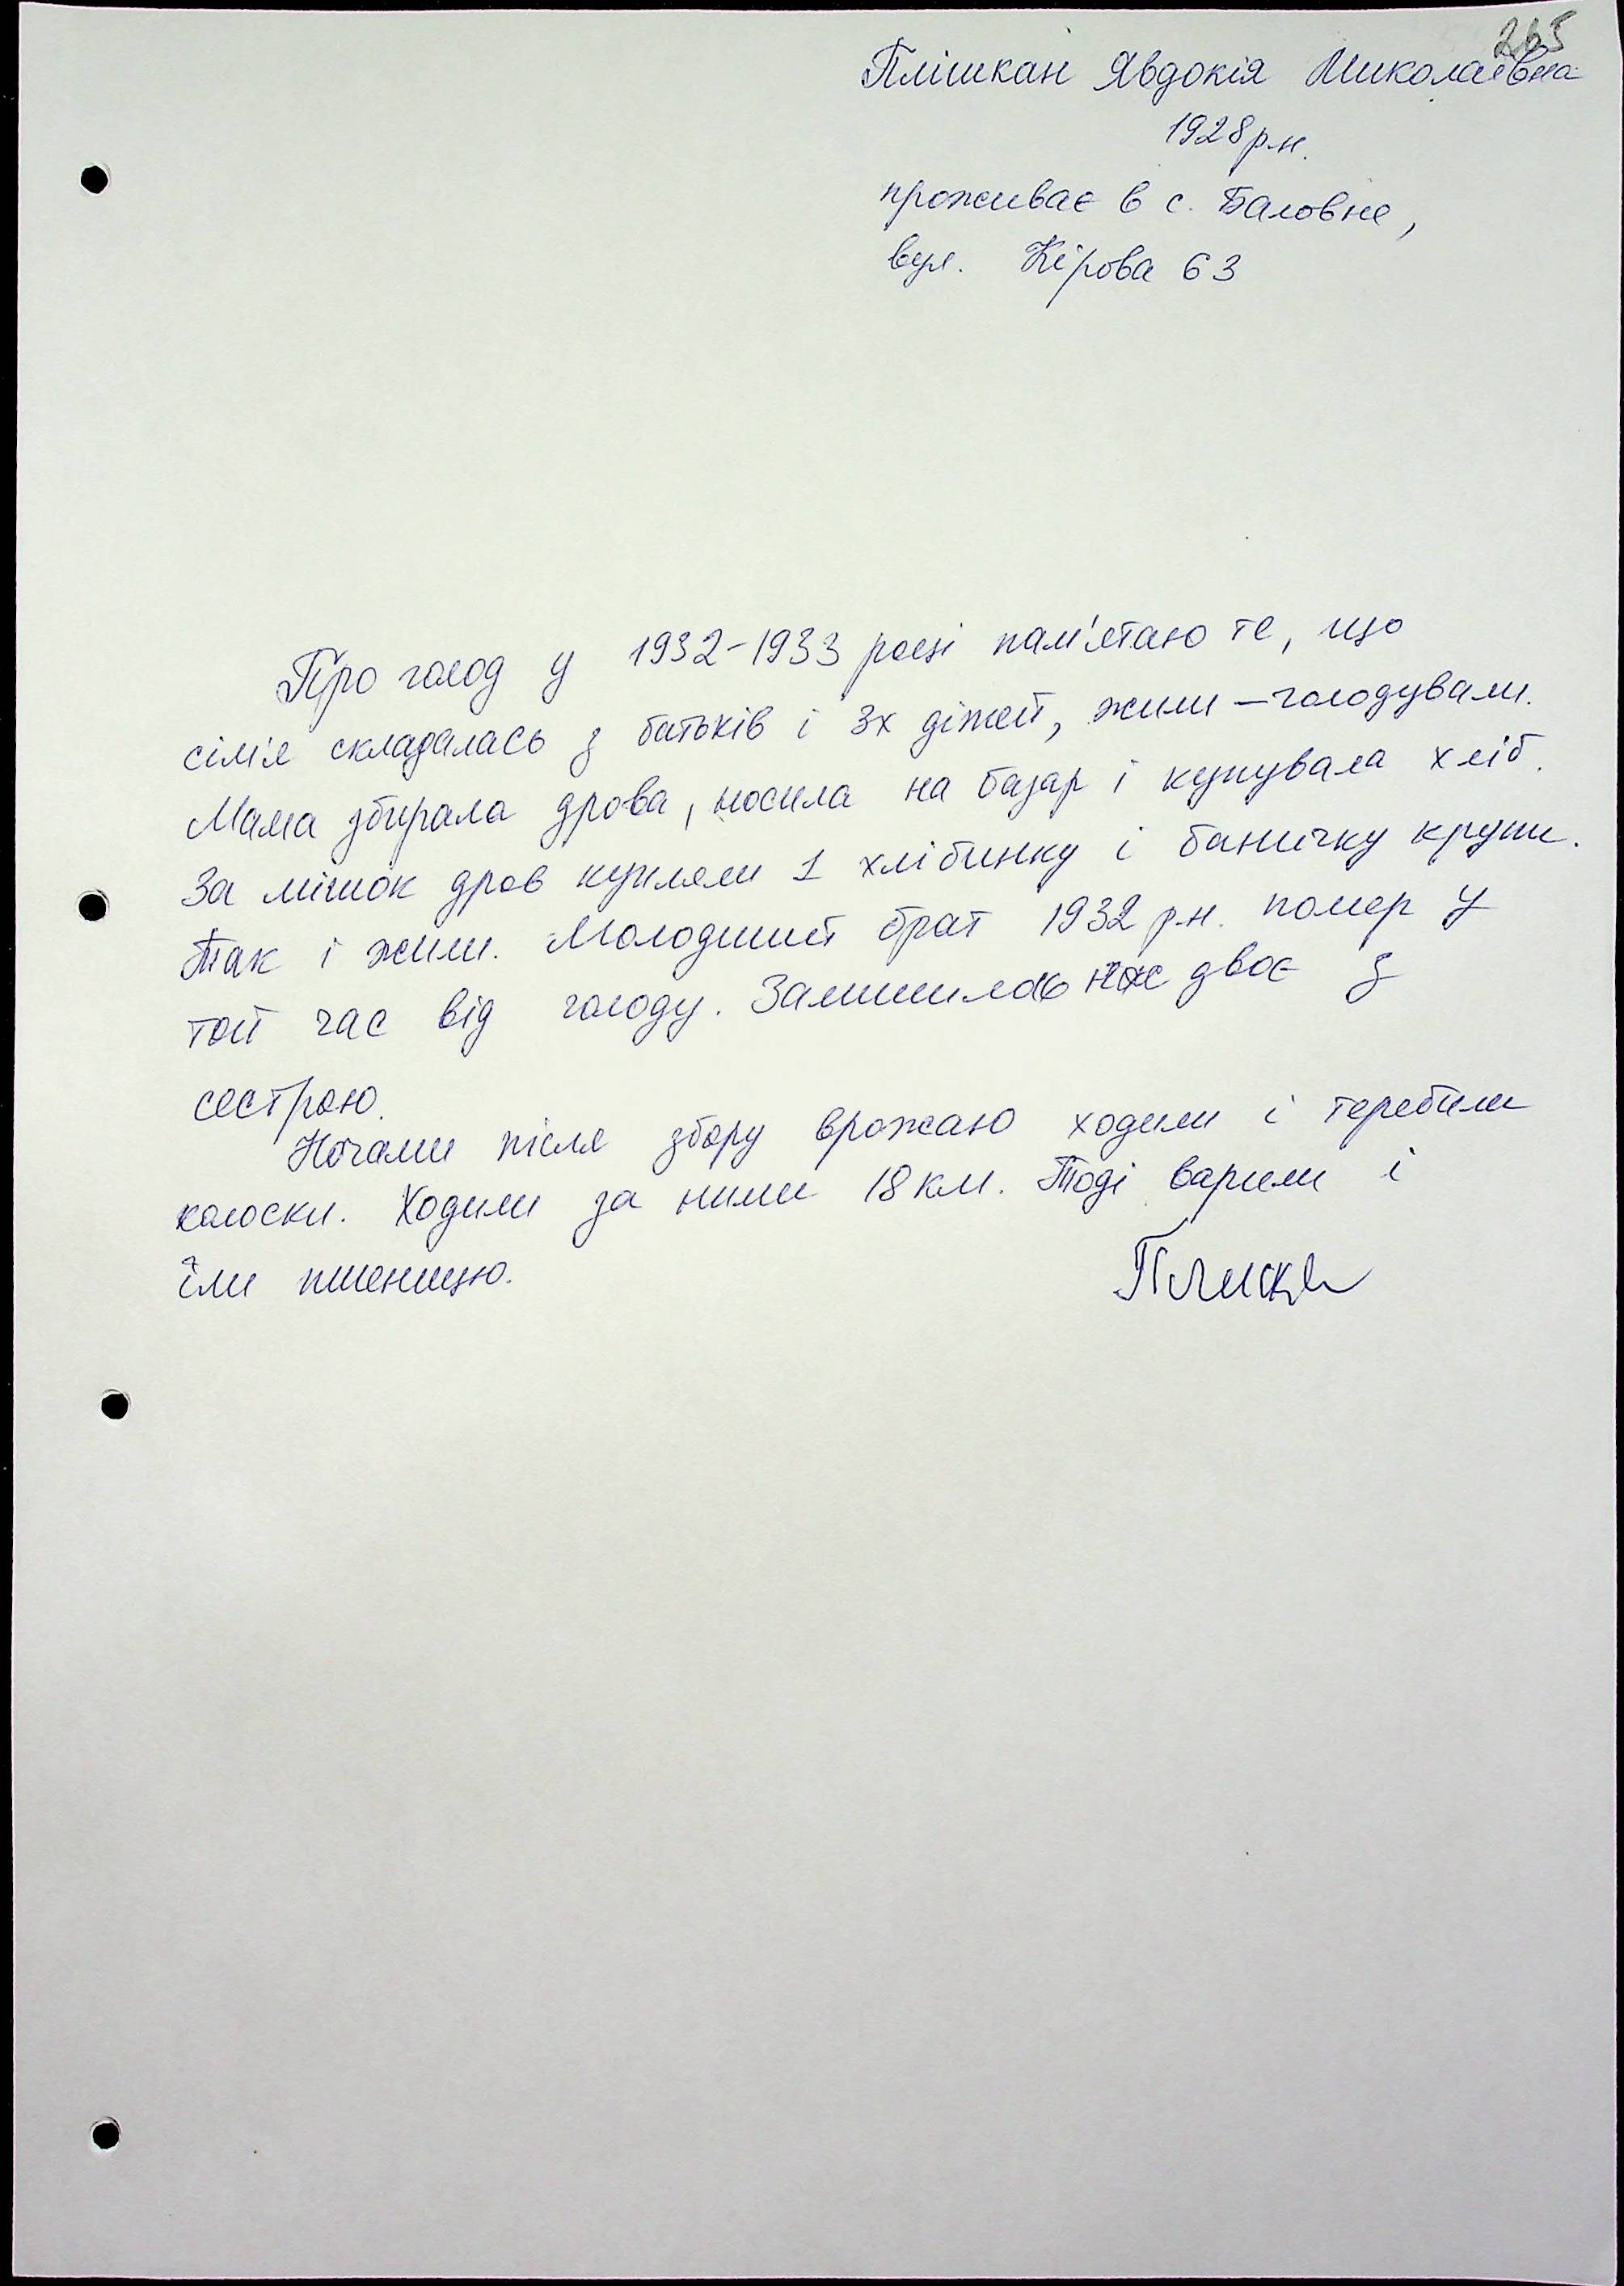 265
Плішкан Явдокія Миколаївна
1928 р.н.
проживає в с. Баловне,
вул. Кірова 63
Про голод у 1932-1933 році пам'ятаю те, що
сім'я складалась з батьків і 3х дітей, жили – голодували.
Мама збирала дрова, носила на базар і купувала хліб.
За мішок дров купляли 1 хлібинку і баничку крупи.
Так і жили. Молодший брат 1932 р.н. помер у
той час від голоду. Залишилось нас двоє з
сестрою.
Ночами після збору врожаю ходили і теребили
колоски. Ходили за ними 18 км. Тоді варили і
їли пшеницю.